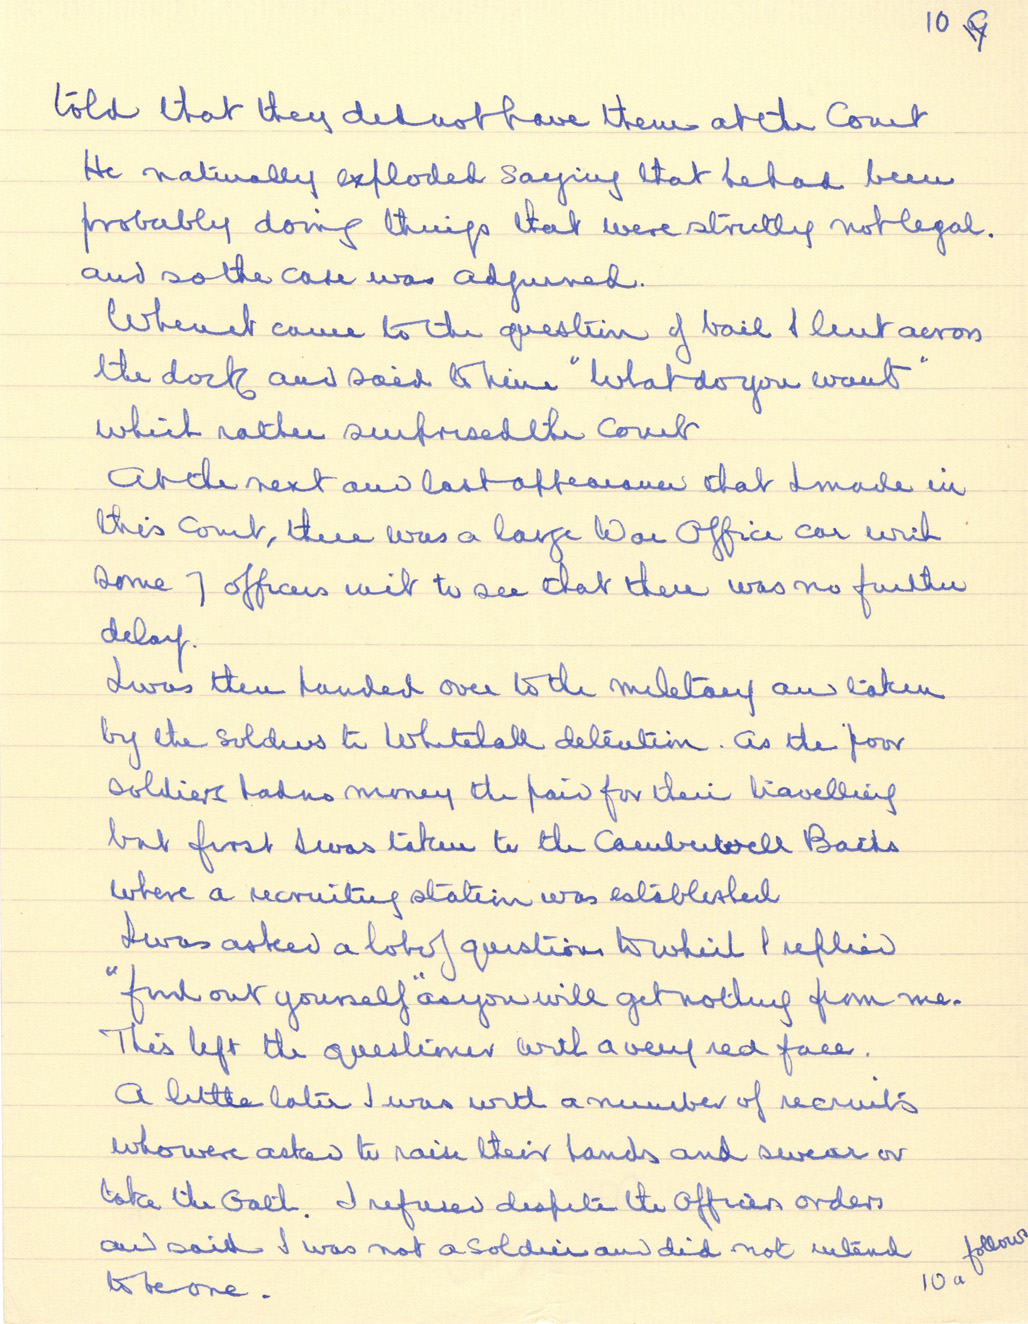 10
told that they did not have them at the Court
He naturally exploded saying that he had been
probably doing things that were strictly not legal.
and so the case was adjurned.
When it came to the question of bail I lent across
the dock and said to him "What do you want"
which rather surprised the Court
At the next and last appearance that I made in
this Court, there was a large War Office car with
some 7 officers in it to see that there was no further
delay.
I was then handed over to the miletary and taken
by the soldiers to Whitehall detention. As the poor
soldiers had no money the paid for their travelling
but first I was taken to the Camberwell Baths
where a recruiting station was established
I was asked a lot of questions to which I replied
"find out yourself" as you will get nothing from me.
This left the questioner with a very red face.
A little later I was with a number of recruits
who were asked to raise their hands and swear or
take the Oath. I refused despite the Officers orders
and said I was not a Soldier and did not intend
to be one.
10a follows